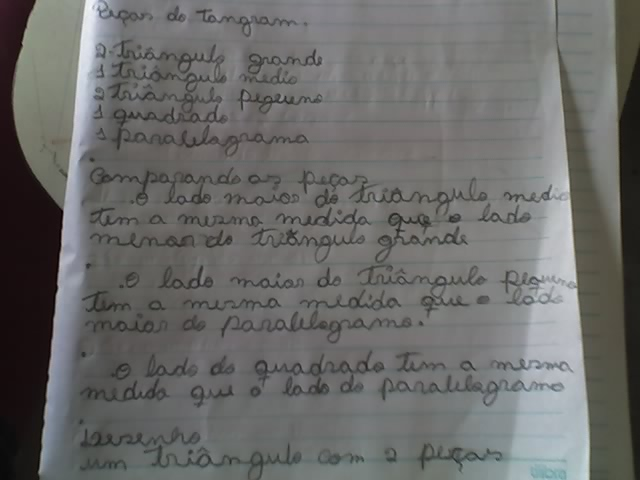 Peças do tangram.
2 triângulo grande
1 triângulo medio
2 triângulo pequeno
1 quadrado
1 paralelagrama
Comparando as peças
.O lado maior do triângulo medio
tem a mesma medida que o lado
menor do triângulo grande
.O lado maior do triângulo pequeno
tem a mesma medida que o lado
maior do paralelogramo.
.O lado do quadrado tem a mesma
medida que o lado do paralelogramo
Desenho
um triângulo com 2 peças